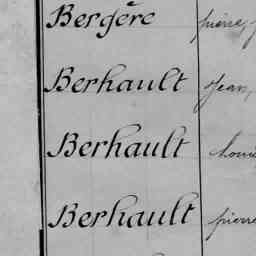 Bergère pierre,
Berhault Jean,
Berhault Louis
Berhault pierre